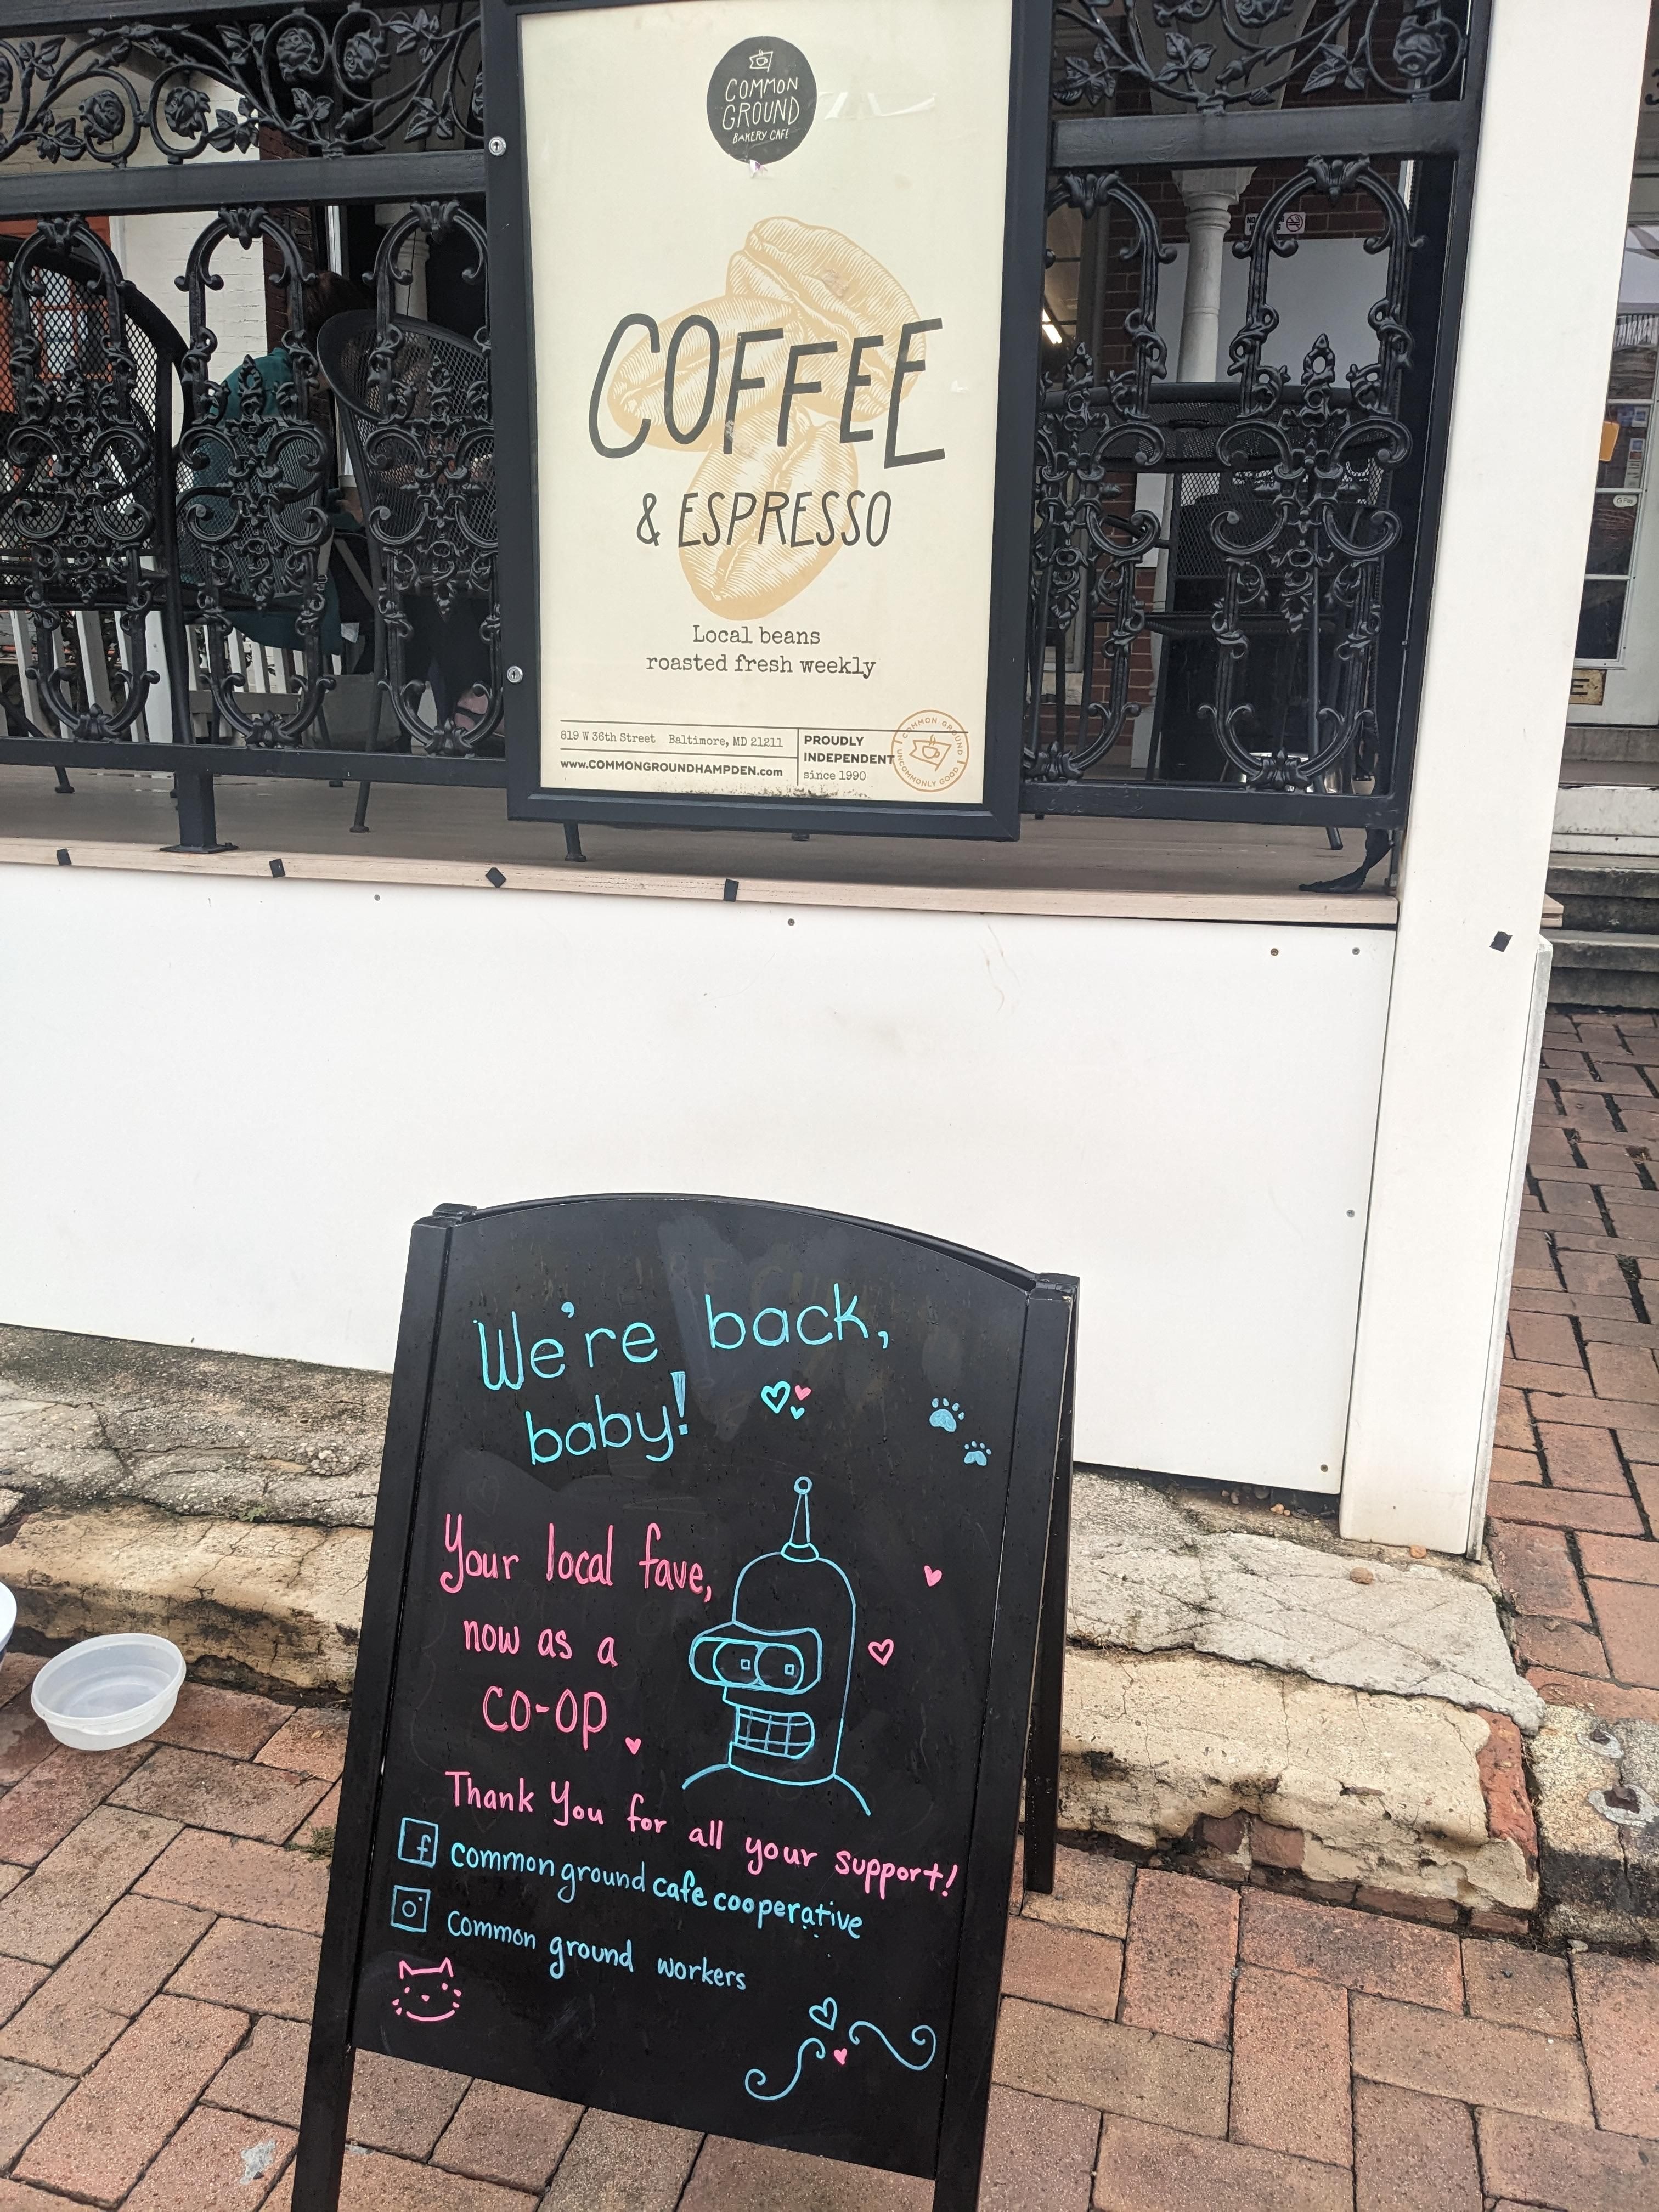 COMMON
GROUND
BAKERY CAFE
COFFEE
& ESPRESSO
Local beans
roasted fresh weekly
819 W 36th Street Baltimore, MD 21211
www.COMMONGROUNDHAMPDEN.com
PROUDLY
INDEPENDENT
since 1990
COMMON GROUND
UNCOMMONLY GOOD
We're back,
baby!
Your local fave,
now as a
CO-OP
Thank You for all your support!
f common ground cafe cooperative
Common ground workers